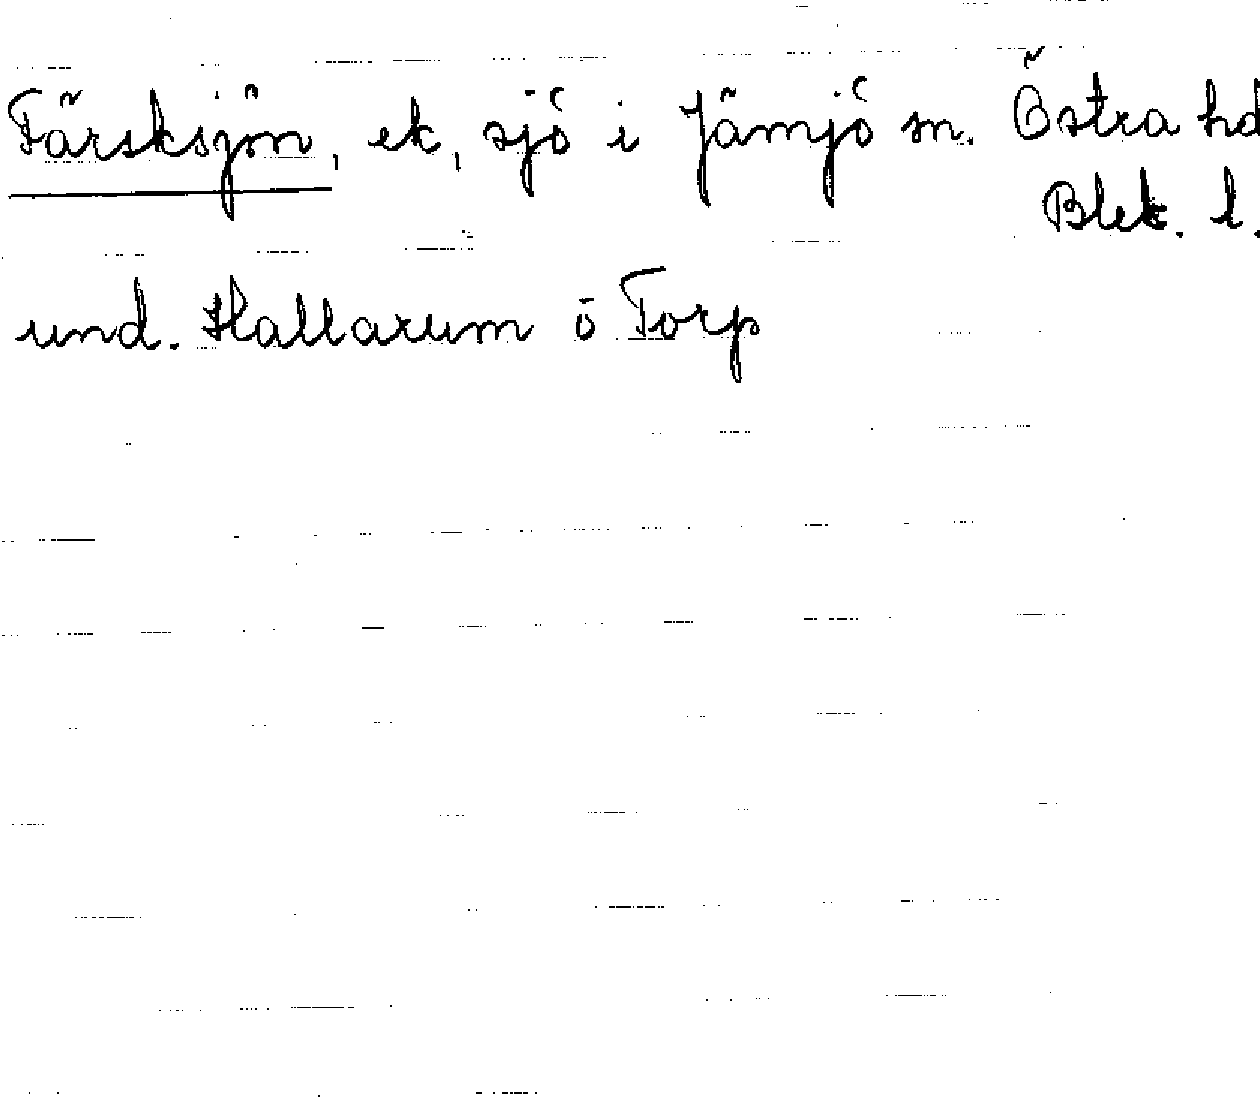 Färsksjön, ek, sjö i Jämjö sn. Östra hd
Blek. l.
und. Hallarum ö Torp